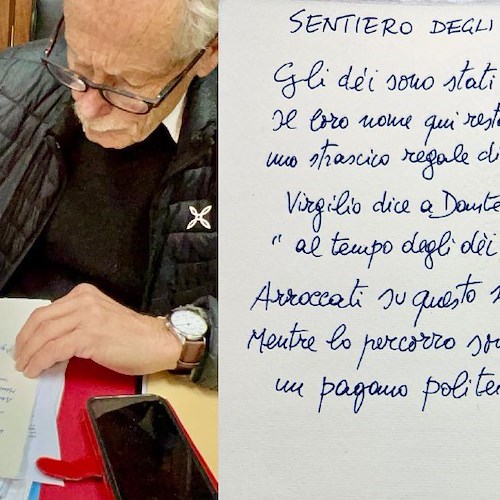 SENTIERO DEGLI
Gli dèi sono stati
Il loro nome qui rest
uno strascico regale di
Virgilio dice a Dante
" al tempo degli dèi
Arroccati su questo s
Mentre lo percorro son
un pagano polite